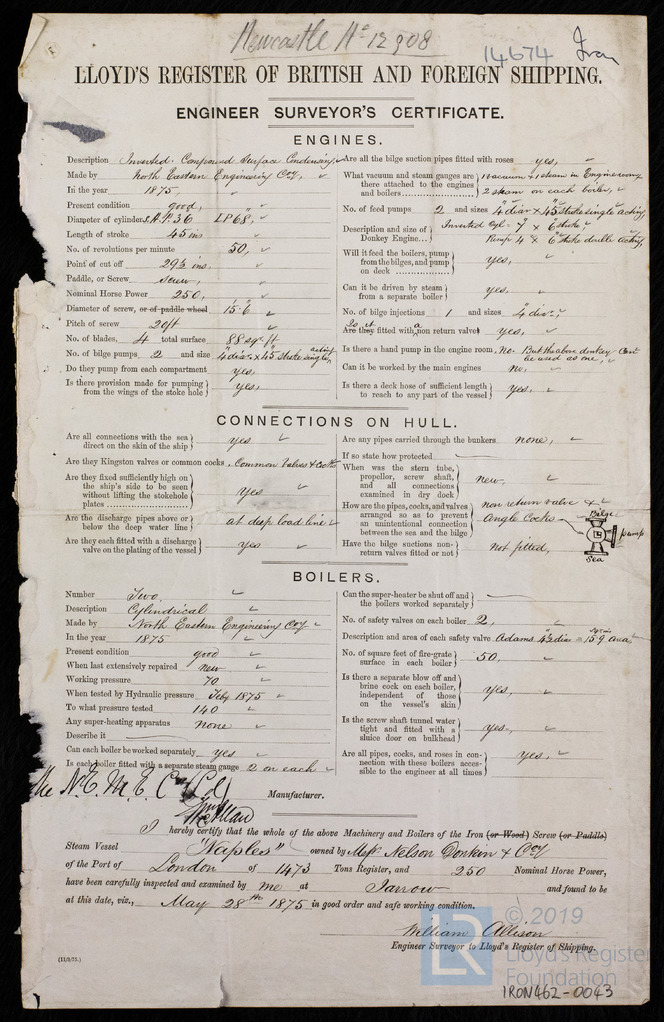 Newcastle No 12908
14674 Iron
LLOYD'S REGISTER OF BRITISH AND FOREIGN SHIPPING.
ENGINEER SURVEYOR'S CERTIFICATE.
ENGINES.
Description Inverted. Compound Surface Condensing
Made by North Eastern Engineering Coy,
In the year 1875,
Present condition good,
Diameter of cylinders, H.P. 36 LP 68,
Length of stroke 45 ins
No. of revolutions per minute 50,
Point of cut off 29½ ins.
Paddle, or Screw, Screw,
Nominal Horse Power 250,
Diameter of screw, or of paddle wheel 15'6"
Pitch of screw 20ft
No. of blades, 4 total surface 88 sq. ft
No. of bilge pumps 2 and size 4" diar. x 45" stroke single acting
Do they pump from each compartment yes,
Is there provision made for pumping from the wings of the stoke hole } yes,
Are all the bilge suction pipes fitted with roses yes,
What vacuum and steam gauges are there attached to the engines and boilers } 1 vacuum & 1 steam in Engineroom
2 steam on each boiler,
No. of feed pumps 2 and sizes 4" diar x 45" stroke single acting
Description and size of Donkey Engine } Inverted Cyl- 7" x 6" stroke
Pump 4" x 6" stroke double acting,
Will it feed the boilers, pump from the bilges, and pump on deck } yes,
Can it be driven by steam from a separate boiler } yes,
No. of bilge injections 1 and sizes 4" diar,
Is it
Are they fitted with a non return valve yes,
Is there a hand pump in the engine room, No. But the above donkey Can be used as one,
Can it be worked by the main engines no,
Is there a deck hose of sufficient length to reach to any part of the vessel } Yes,
CONNECTIONS ON HULL.
Are all connections with the sea direct on the skin of the ship } yes
Are they Kingston valves or common cocks, Common valves & Cocks
Are they fixed sufficiently high on the ship's side to be seen without lifting the stokehole plates } Yes
Are the discharge pipes above or below the deep water line } at deep load line
Are they each fitted with a discharge valve on the plating of the vessel } yes
Are any pipes carried through the bunkers none,
If so state how protected
When was the stern tube, propellor, screw shaft, and all connections examined in dry dock } new,
How are the pipes, cocks, and valves arranged so as to prevent an unintentional connection between the sea and the bilge } non return valve &
Angle Cocks
Bilge
pump
Sea
Have the bilge suctions non-return valves fitted or not } Not fitted,
BOILERS.
Number Two,
Description Cylindrical
Made by North Eastern Engineering Coy
In the year 1875
Present condition good
When last extensively repaired new
Working pressure 70
When tested by Hydraulic pressure Feby 1875
To what pressure tested 140
Any super-heating apparatus none
Describe it
Can each boiler be worked separately yes
Is each boiler fitted with a separate steam gauge 2 on each
Can the super-heater be shut off and the boilers worked separately }
No. of safety valves on each boiler 2,
Description and area of each safety valve Adams 4½ dia = 15.9 area
No. of square feet of fire-grate surface in each boiler } 50,
Is there a separate blow off and brine cock on each boiler, independent of those on the vessel's skin } yes,
Is the screw shaft tunnel water tight and fitted with a sluice door on bulkhead } yes,
Are all pipes, cocks, and roses in connection with these boilers accessible to the engineer at all times } yes,
the N.E. M. E. Cy Ld
Manufacturer.
I hereby certify that the whole of the above Machinery and Boilers of the Iron (or Wood) Screw (or Paddle)
Steam Vessel "Naples" owned by Messrs Nelson Donkin & Coy
of the Port of London of 1473 Tons Register, and 250 Nominal Horse Power,
have been carefully inspected and examined by me at Jarrow and found to be
at this date, viz., May 28th 1875 in good order and safe working condition.
William Allison
Engineer Surveyor to Lloyd's Register of Shipping.
LR
© 2019
Lloyd's Register
Foundation
IRON462-0043